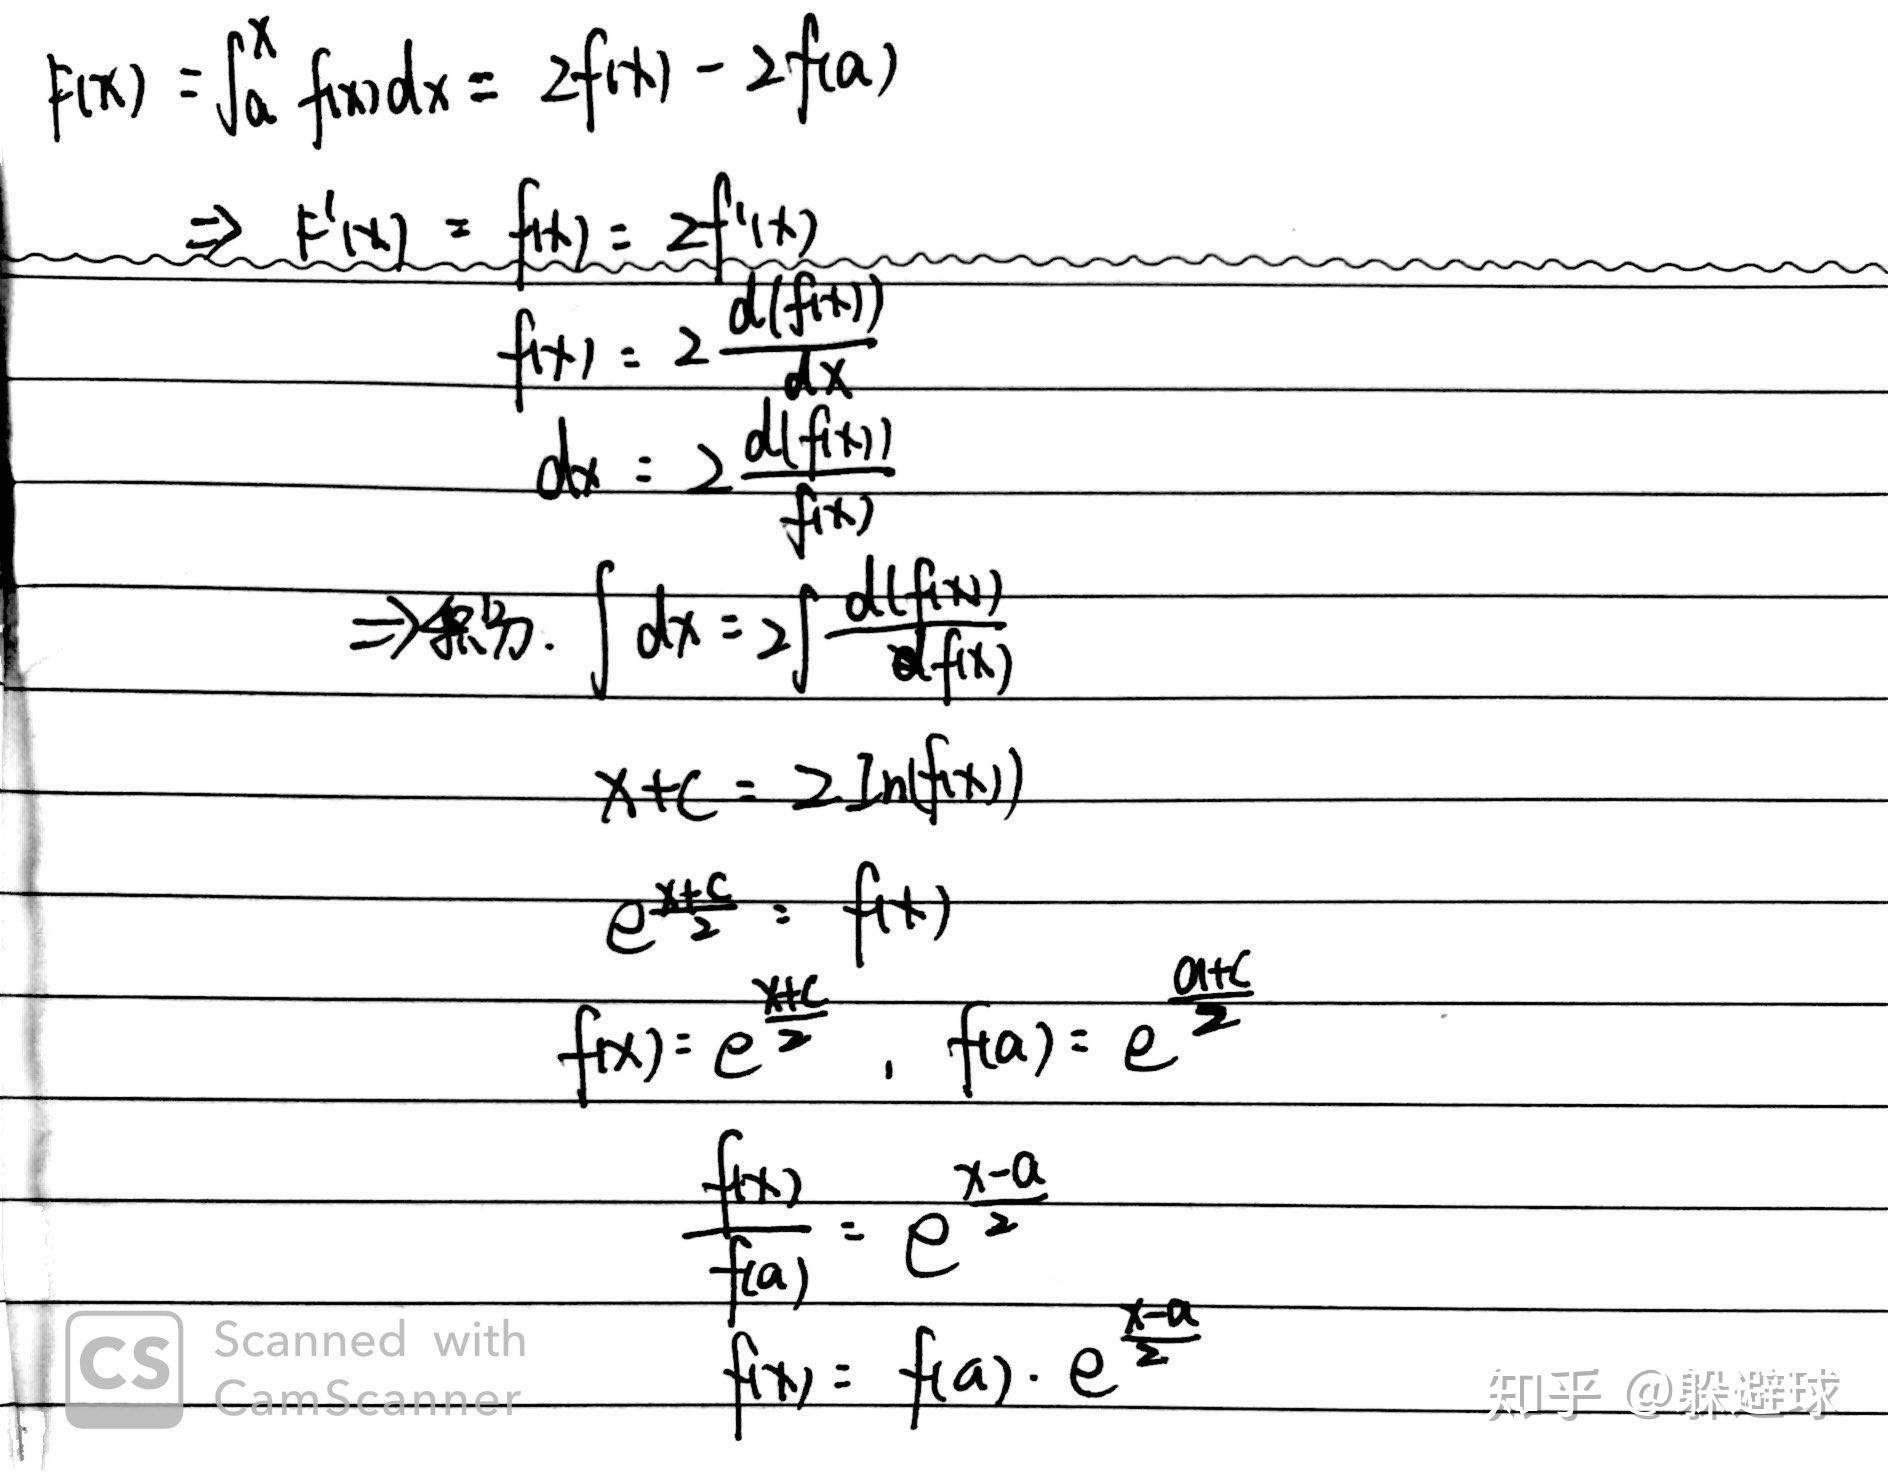 F(x) = ∫ₐˣ f(x)dx = 2f(x) - 2f(a)
⇒ F'(x) = f(x) = 2f'(x)
f(x) = 2 d(f(x))/dx
dx = 2 d(f(x))/f(x)
⇒积分. ∫dx = 2∫ d(f(x))/f(x)
x+c = 2 In(f(x))
e^((x+c)/2) = f(x)
f(x) = e^((x+c)/2) , f(a) = e^((a+c)/2)
f(x)/f(a) = e^((x-a)/2)
f(x) = f(a) · e^((x-a)/2)
CS Scanned with
CamScanner
知乎 @躲避球